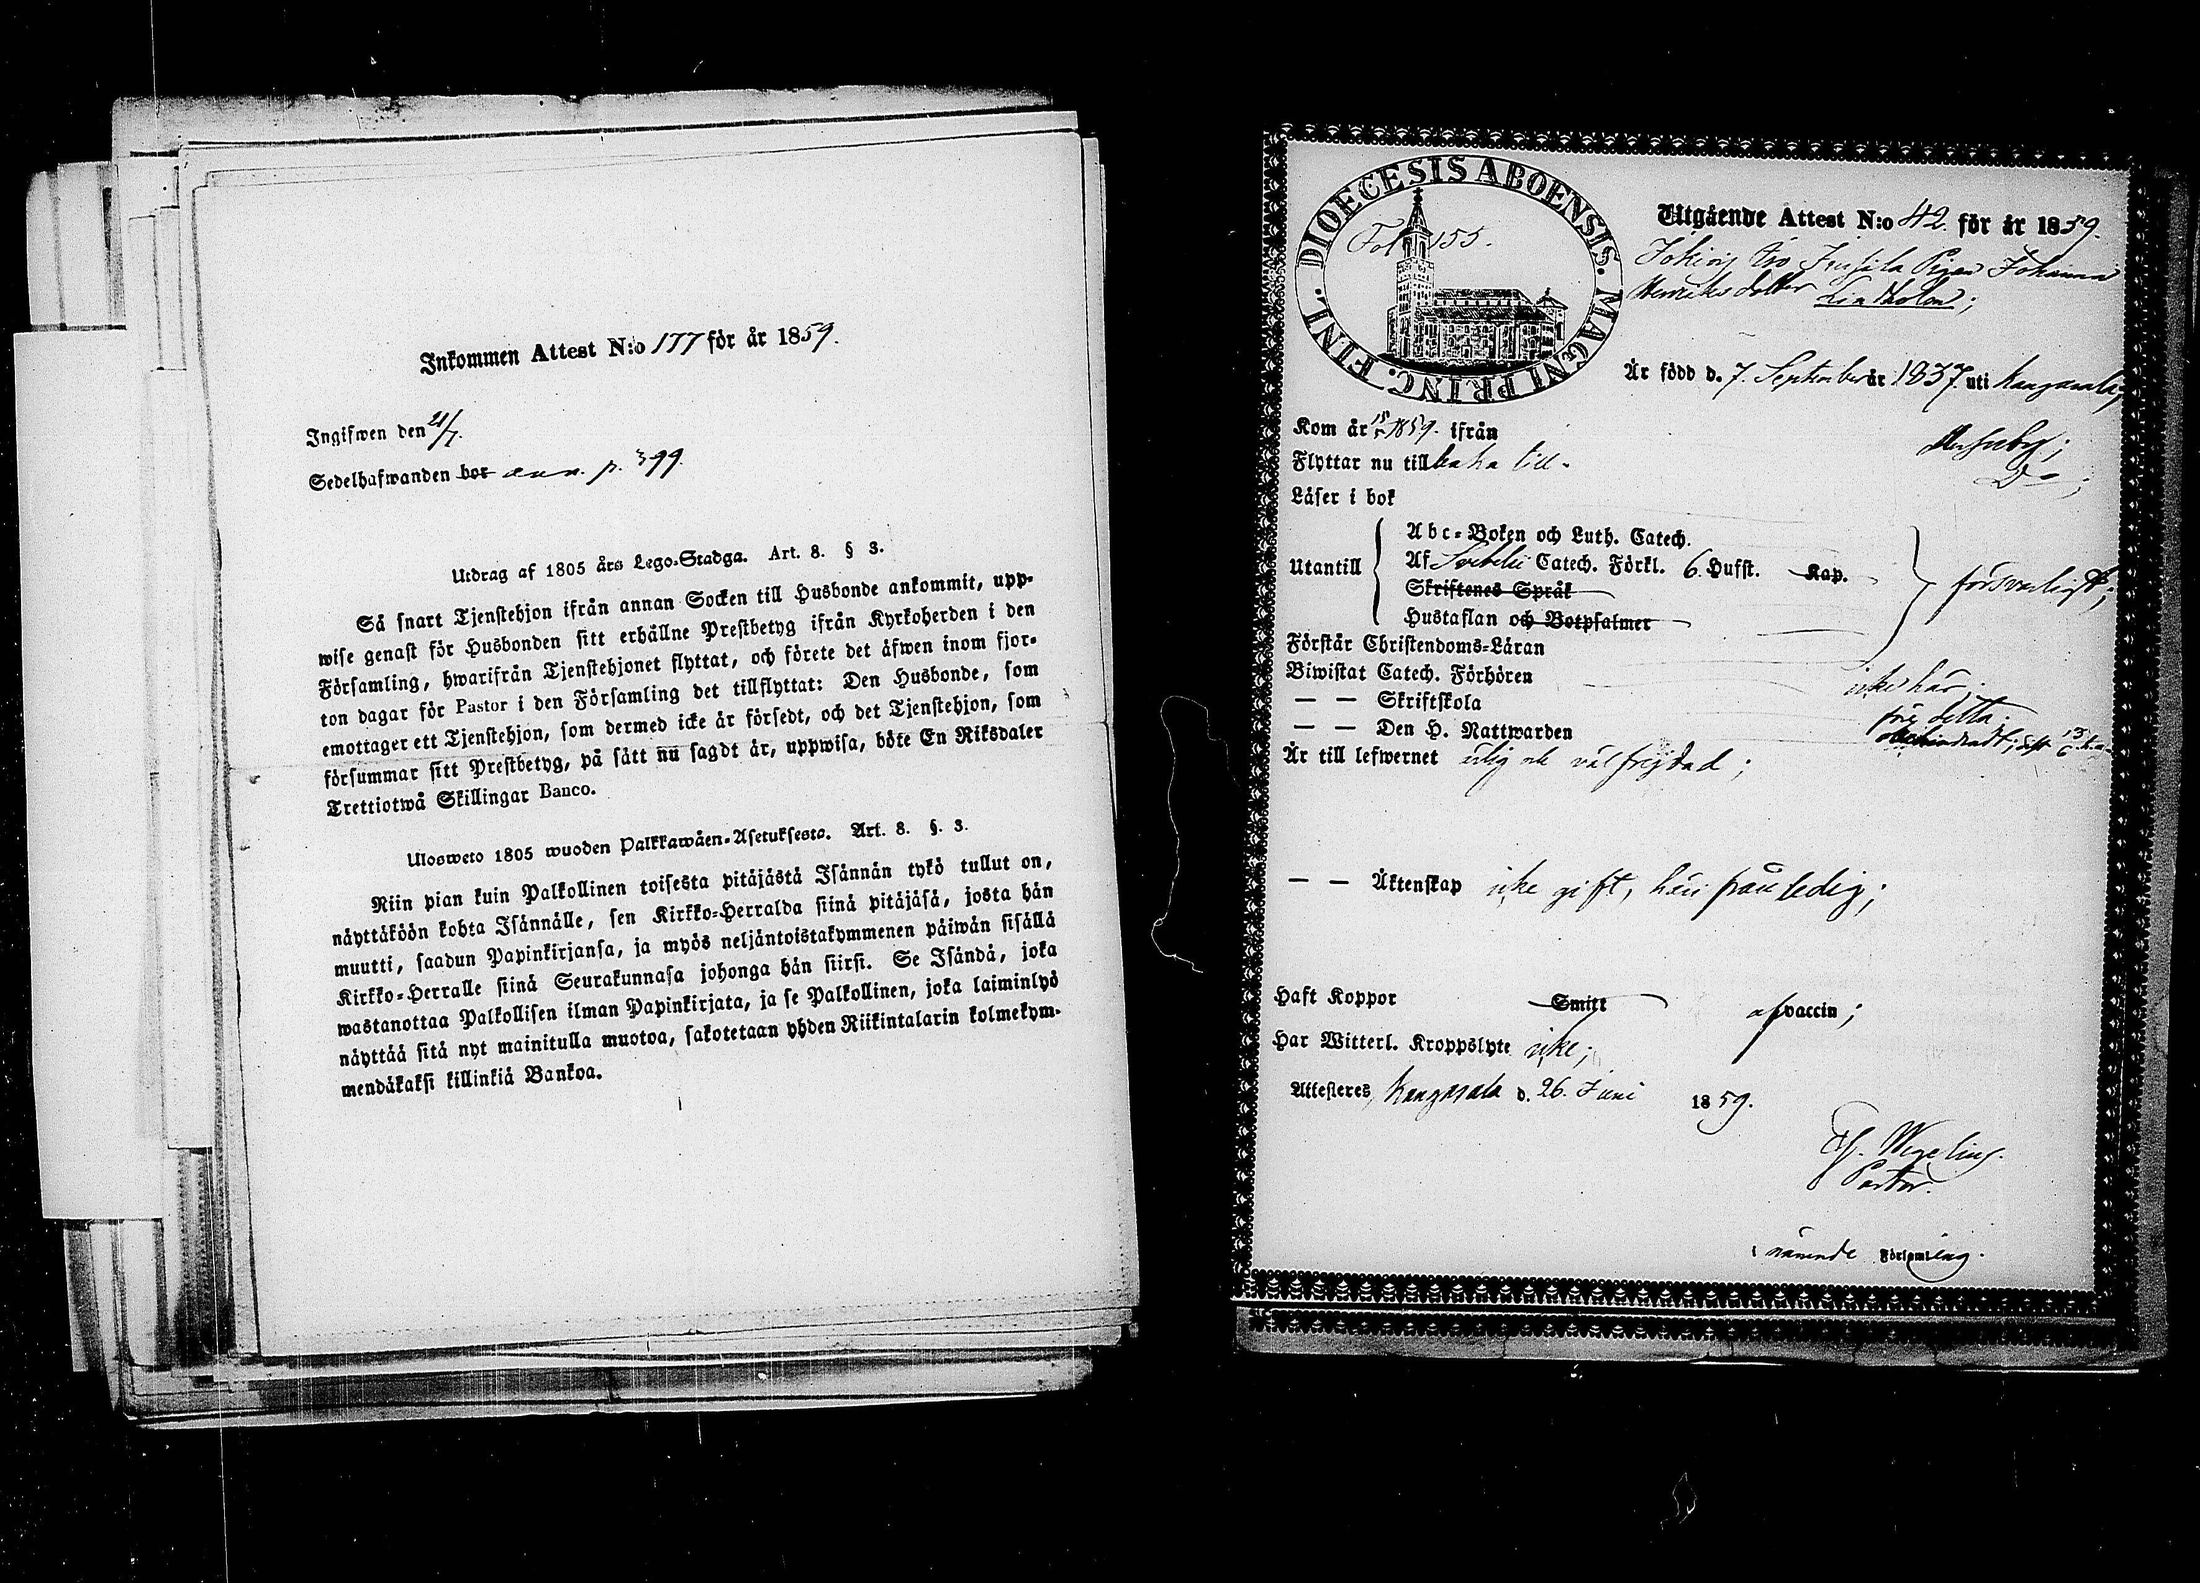 Inkommen Attest N:o 177 för år 1859.
Ingifwen den 21/7.
Sedelhafwanden bor ann. p. 399.
Utdrag af 1805 års Lego-Stadga. Art. 8. § 3.
Så snart Tjenstehjon ifrån annan Socken till Husbonde ankommit, upp-
wise genast för Husbonden sitt erhållne Prestbetyg ifrån Kyrkoherden i den
Församling, hwarifrån Tjenstehjonet flyttat, och förete det äfwen inom fjor-
ton dagar för Pastor i den Församling det tillflyttat: Den Husbonde, som
emottager ett Tjenstehjon, som dermed icke är försedt, och det Tjenstehjon, som
försummar sitt Prestbetyg, på sätt nu sagdt är, uppwisa, böte En Riksdaler
Trettiotwå Skillingar Banco.
Ulosweto 1805 wuoden Palkkawäen-Asetuksesta. Art. 8. §. 3.
Niin pian kuin Palkollinen toisesta pitäjästä Isännän tykö tullut on,
näyttäköön kohta Isännälle, sen Kirkko-Herralda siinä pitäjäsä, josta hän
muutti, saadun Papinkirjansa, ja myös neljäntoistakymmenen päiwän sisällä
Kirkko-Herralle siinä Seurakunnasa johonga hän siirsi. Se Isändä, joka
wastanottaa Palkollisen ilman Papinkirjata, ja se Palkollinen, joka laiminlyö
näyttää sitä nyt mainitulla muotoa, sakotetaan yhden Riikintalarin kolmekym-
mendäkaksi killinkiä Bankoa.
DIOECESIS ABOENSIS. MAGNI PRINC. FINL.
Fol 155.
Utgående Attest N:o 42. för år 1859.
Pigan Johanna
Henriksdotter Lindholm;
Är född d. 7. September år 1837 uti Kangasala;
Kom år 1859. ifrån
Flyttar nu tillbaka till. Do;
Läser i bok
Utantill
Abc-Boken och Luth. Catech.
Af Svebelii Catech. Förkl. 6. Hufst. Kap.
Skriftenes Språk
Hustaflan och Botpsalmer
försvarligt;
Förstår Christendoms-Läran
Biwistat Catech. Förhören icke här;
— — Skriftskola för detta;
— — Den H. Nattwarden obehindradt;
Är till lefwernet ärlig och välfrejdad;
— — Äktenskap icke gift, härifrån ledig;
Haft Koppor Smitt af vaccin;
Har Witterl. Kroppslyte icke;
Attesteres, Kangasala d. 26. Juni 1859.
Wegelius.
Pastor.
i nämnde Församling.